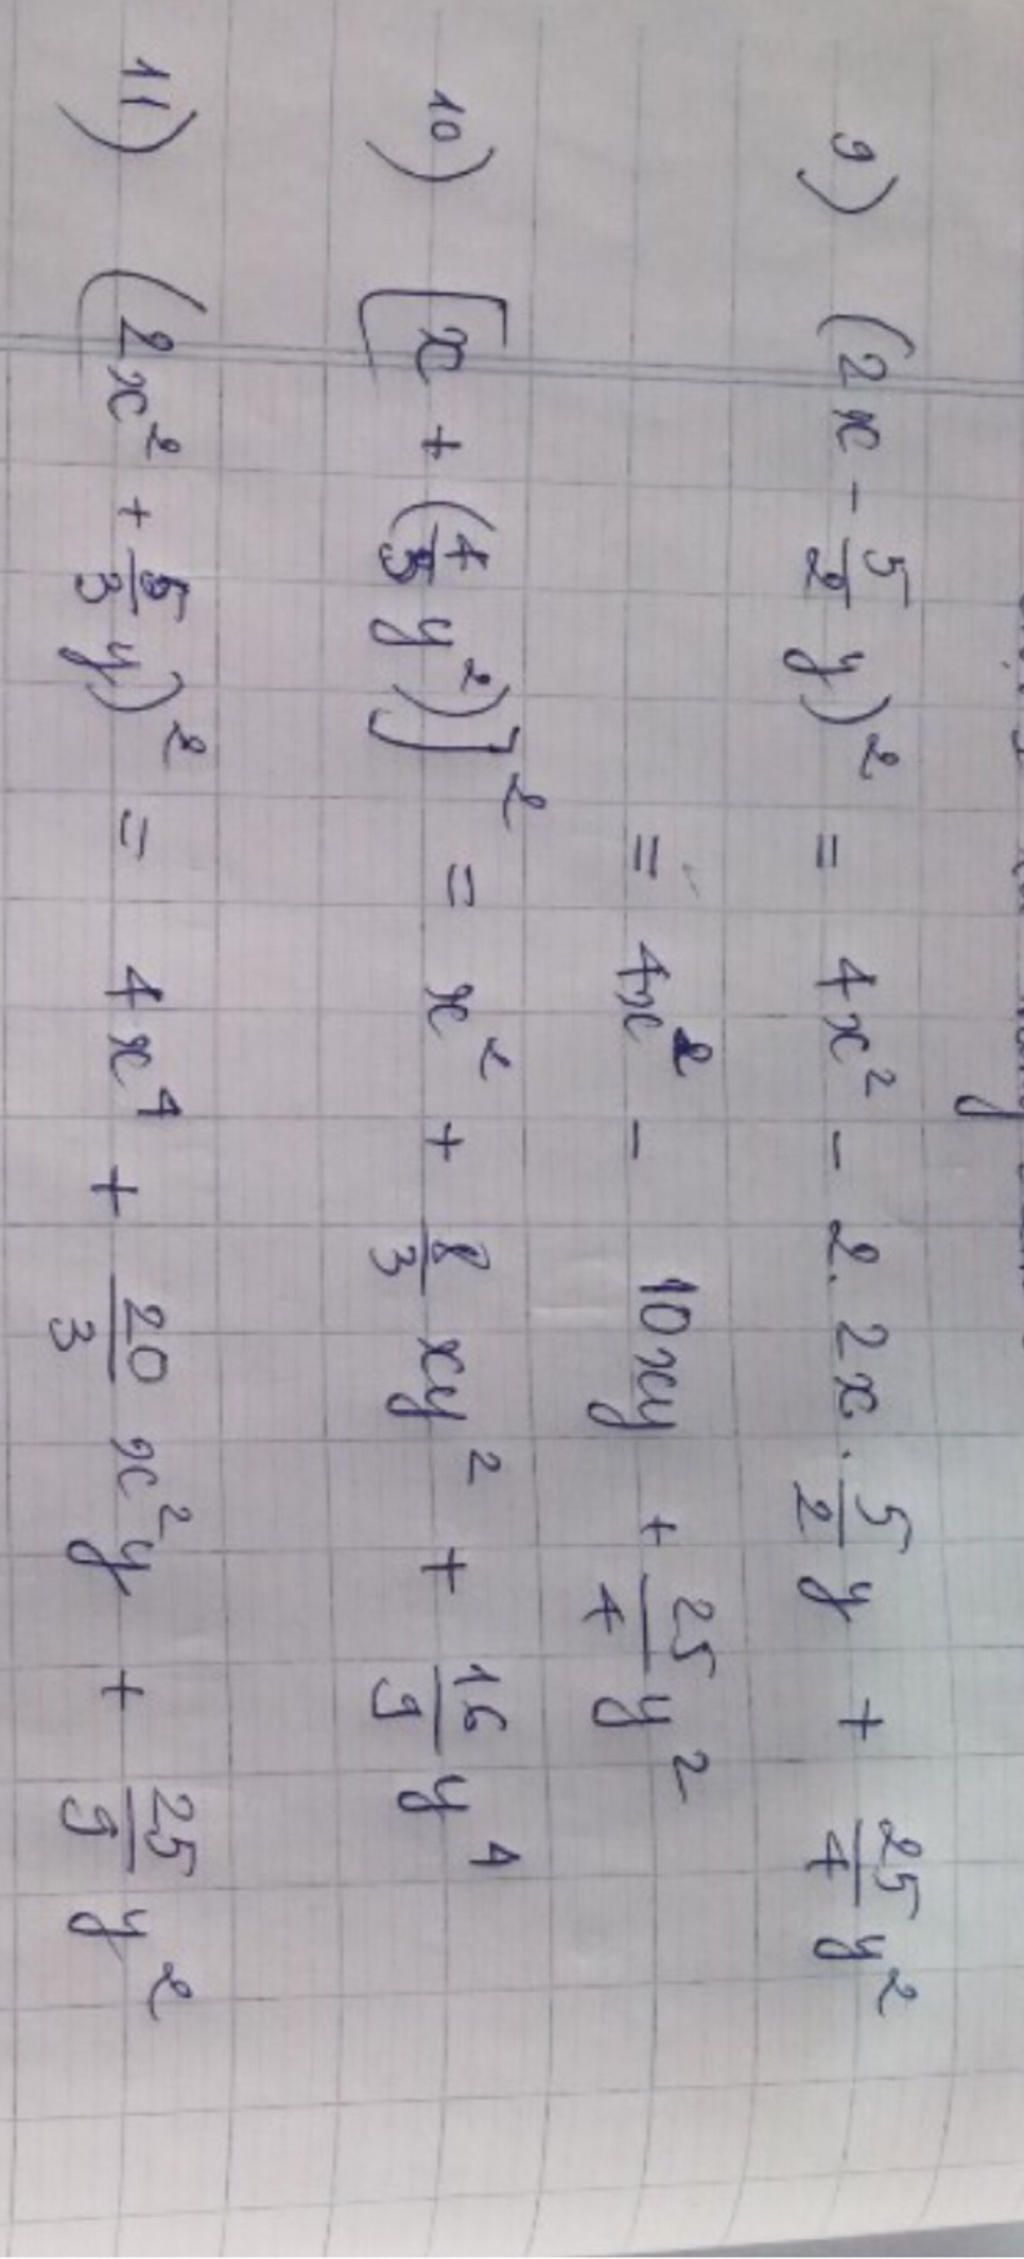 9) (2x - 5/2 y)² = 4x² - 2. 2x. 5/2 y + 25/4 y²
= 4x² - 10xy + 25/4 y²
10) [x + (4/3 y²)]² = x² + 8/3 xy² + 16/9 y⁴
11) (2x² + 5/3 y)² = 4x⁴ + 20/3 x²y + 25/9 y²